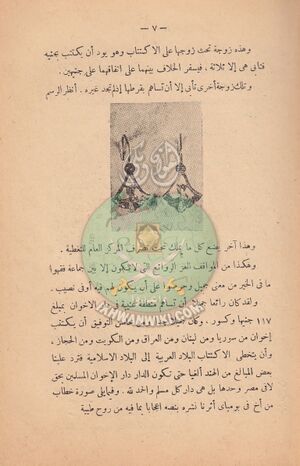 — ٧ —
وهذه زوجة تحث زوجها على الاكتتاب وهو يود أن يكتتب بجنيه
فتأبى هى إلا ثلاثة ، فيسفر الخلاف بينهما على اتفاقهما على جنيهين .
وتلك زوجة أخرى تأبى إلا أن تساهم بقرطها إذ لم تجد غيره . أنظر الرسم
وهذا آخر يضع كل ما يملك تحت تصرف المركز العام للتغطية .
وهكذا من المواقف الغر الروائع التى لا تكون إلا بين جماعة فقهوا
ما فى الخير من معنى جميل وحرصوا على أن يكون لهم فيه أوفى نصيب .
ولقد كان رائعاً جميلا أن تساهم شعبة فى الإخوان بمبلغ
١١٧ جنيها وكسور ، وكان جميلا التوفيق أن يكتتب
إخوان من سوريا ومن لبنان ومن العراق ومن الكويت ومن الحجاز ،
وأن يتخطى الاكتتاب البلاد العربية إلى البلاد الاسلامية فترد علينا
بعض المبالغ من الهند أيضا حتى تكون الدار دار الإخوان المسلمين بحق
لا فى مصر وحدها بل هى دار كل مسلم والحمد لله . وفيما يلى صورة خطاب
من أخ فى بومباى أثرنا نشره بنصه اعجابا بما فيه من روح طيبة
IKHWANWIKI.COM